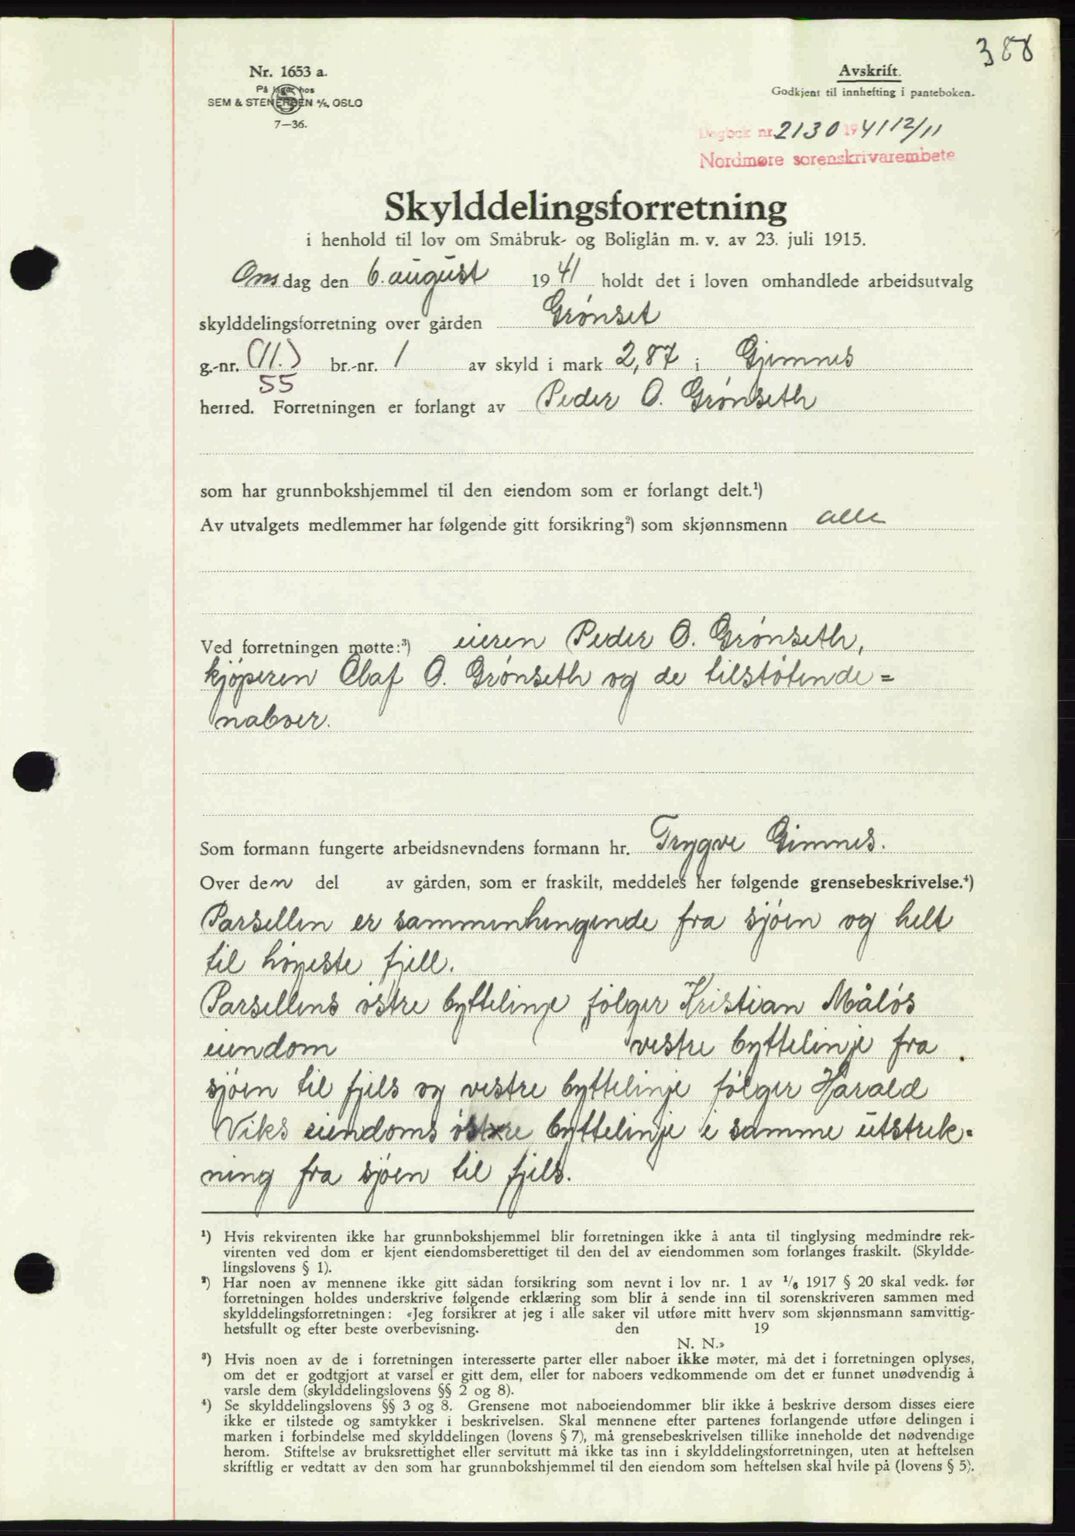 388
Nr. 1653 a.
På lager hos
SEM & STENERSEN A/S, OSLO
7—36.
Avskrift.
Godkjent til innhefting i panteboken.
Dagbok nr. 2130 1941 12/11
Nordmøre sorenskrivarembete
Skylddelingsforretning
i henhold til lov om Småbruk- og Boliglån m. v. av 23. juli 1915.
Onsdag den 6. august 1941 holdt det i loven omhandlede arbeidsutvalg
skylddelingsforretning over gården Grønset
g.-nr. (11.) br.-nr. 1 av skyld i mark 2,87 i Gjemnes
55
herred. Forretningen er forlangt av Peder O. Grønseth
som har grunnbokshjemmel til den eiendom som er forlangt delt.¹)
Av utvalgets medlemmer har følgende gitt forsikring²) som skjønnsmenn alle
Ved forretningen møtte:³) eieren Peder O. Grønseth,
kjøperen Olaf O. Grønseth og de tilstøtende =
naboer.
Som formann fungerte arbeidsnevndens formann hr. Trygve Gimnes.
Over den del av gården, som er fraskilt, meddeles her følgende grensebeskrivelse.⁴)
Parsellen er sammenhengende fra sjøen og helt
til høyeste fjell.
Parsellens østre byttelinje følger Kristian Måløs
eiendom vestre byttelinje fra
sjøen til fjels og vestre byttelinje følger Harald
Viks eiendoms østre byttelinje i samme utstrek-
ning fra sjøen til fjels.
¹) Hvis rekvirenten ikke har grunnbokshjemmel blir forretningen ikke å anta til tinglysing medmindre rek-
virenten ved dom er kjent eiendomsberettiget til den del av eiendommen som forlanges fraskilt. (Skyldde-
lingslovens § 1).
²) Har noen av mennene ikke gitt sådan forsikring som nevnt i lov nr. 1 av 1/6 1917 § 20 skal vedk. før
forretningen holdes underskrive følgende erklæring som blir å sende inn til sorenskriveren sammen med
skylddelingsforretningen: «Jeg forsikrer at jeg i alle saker vil utføre mitt hverv som skjønnsmann samvittig-
hetsfullt og efter beste overbevisning. den 19
N. N.»
³) Hvis noen av de i forretningen interesserte parter eller naboer ikke møter, må det i forretningen oplyses,
om det er godtgjort at varsel er gitt dem, eller for naboers vedkommende om det er funnet unødvendig å
varsle dem (skylddelingslovens §§ 2 og 8).
⁴) Se skylddelingslovens §§ 3 og 8. Grensene mot naboeiendommer blir ikke å beskrive dersom disses eiere
ikke er tilstede og samtykker i beskrivelsen. Skal mennene efter partenes forlangende utføre delingen i
marken i forbindelse med skylddelingen (lovens § 7), må grensebeskrivelsen tillike inneholde det nødvendige
herom. Stiftelse av bruksrettighet eller servitutt må ikke tas inn i skylddelingsforretningen, uten at heftelsen
skriftlig er vedtatt av den som har grunnbokshjemmel til den eiendom som heftelsen skal hvile på (lovens § 5).